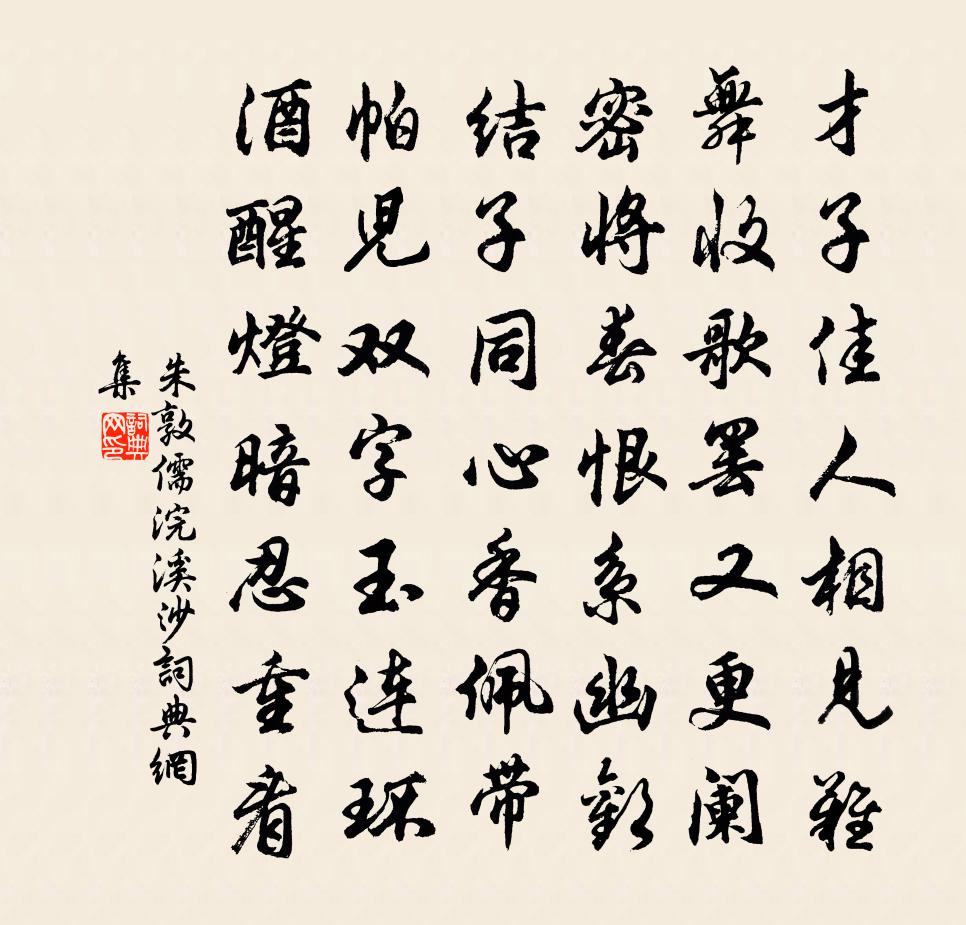 才子佳人相見難
舞收歌罢又更阑
密將春恨系幽歡
结子同心香佩带
帕児双字玉连环
酒醒燈暗忍重看
朱敦儒浣溪沙詞典網
集
詞典网印